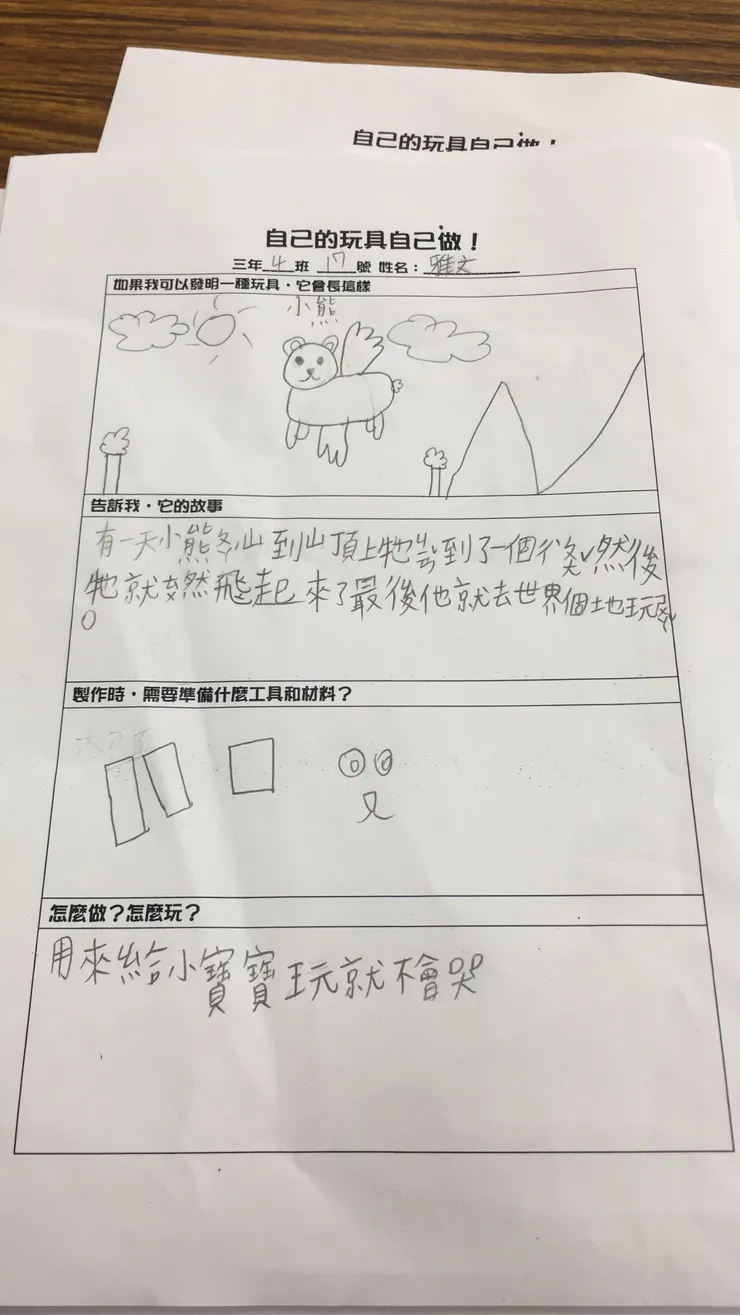 自己的玩具自己做！
自己的玩具自己做！
三年4班 17號 姓名：雅文
如果我可以發明一種玩具，它會長這樣
小熊
告訴我，它的故事
有一天小熊 山到山頂上牠 到了一個 然後
牠就 然飛起來了最後他就去世界個地玩
。
製作時，需要準備什麼工具和材料？
怎麼做？怎麼玩？
用來給小寶寶玩就不會哭